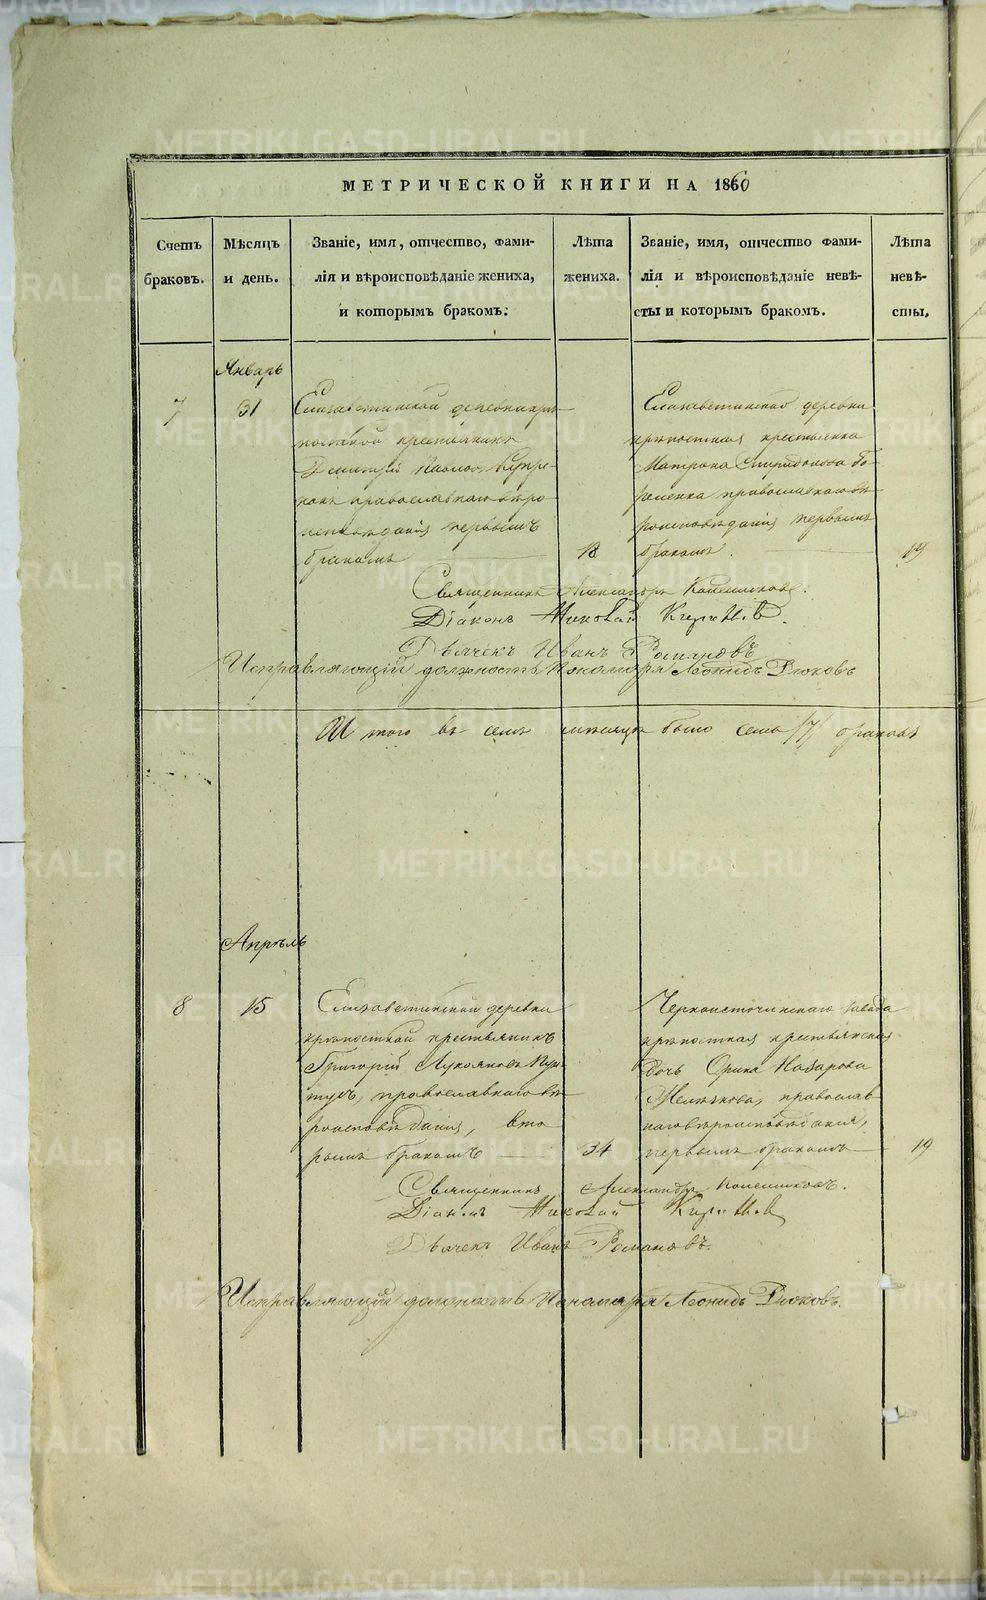 МЕТРИЧЕСКОЙ КНИГИ НА 1860
Счетъ браковъ.
Мѣсяцъ и день.
Званіе, имя, отчество, фами-
лія и вѣроисповѣданіе жениха,
и которымъ бракомъ.
Лѣта
жениха.
Званіе, имя, отчество фами-
лія и вѣроисповѣданіе невѣ-
сты и которымъ бракомъ.
Лѣта
невѣ-
сты.
Январь
7
31
Елизаветинской деревни крѣ-
постной крестьянинъ
Димитрій Павловъ
православнаго вѣро
исповѣданія первымъ
бракомъ
18
Елизаветинской деревни
крѣпостная крестьянка
Матрона Спиридонова
православнаго вѣ
роисповѣданія первымъ
бракомъ.
19
Священникъ Александръ
Діаконъ Николай
Дьячекъ Иванъ Романовъ
Исправляющій должность Пономаря Леонидъ Рюковъ
И того въ семъ мѣсяцѣ было семь /7/ браковъ
Апрѣль
8
15
Елизаветинской деревни
крѣпостной крестьянинъ
Григорій Лукояновъ
православнаго вѣ
роисповѣданія, вто
рымъ бракомъ
34
Черноисточинскаго завода
крѣпостная крестьянская
дочь Орина Назарова
православ
наго вѣроисповѣданія,
первымъ бракомъ
19
Священникъ Александръ
Діаконъ Николай
Дьячекъ Иванъ Романовъ.
Исправляющій должность Пономаря Леонидъ Рюковъ.
METRIKI.GASO-URAL.RU